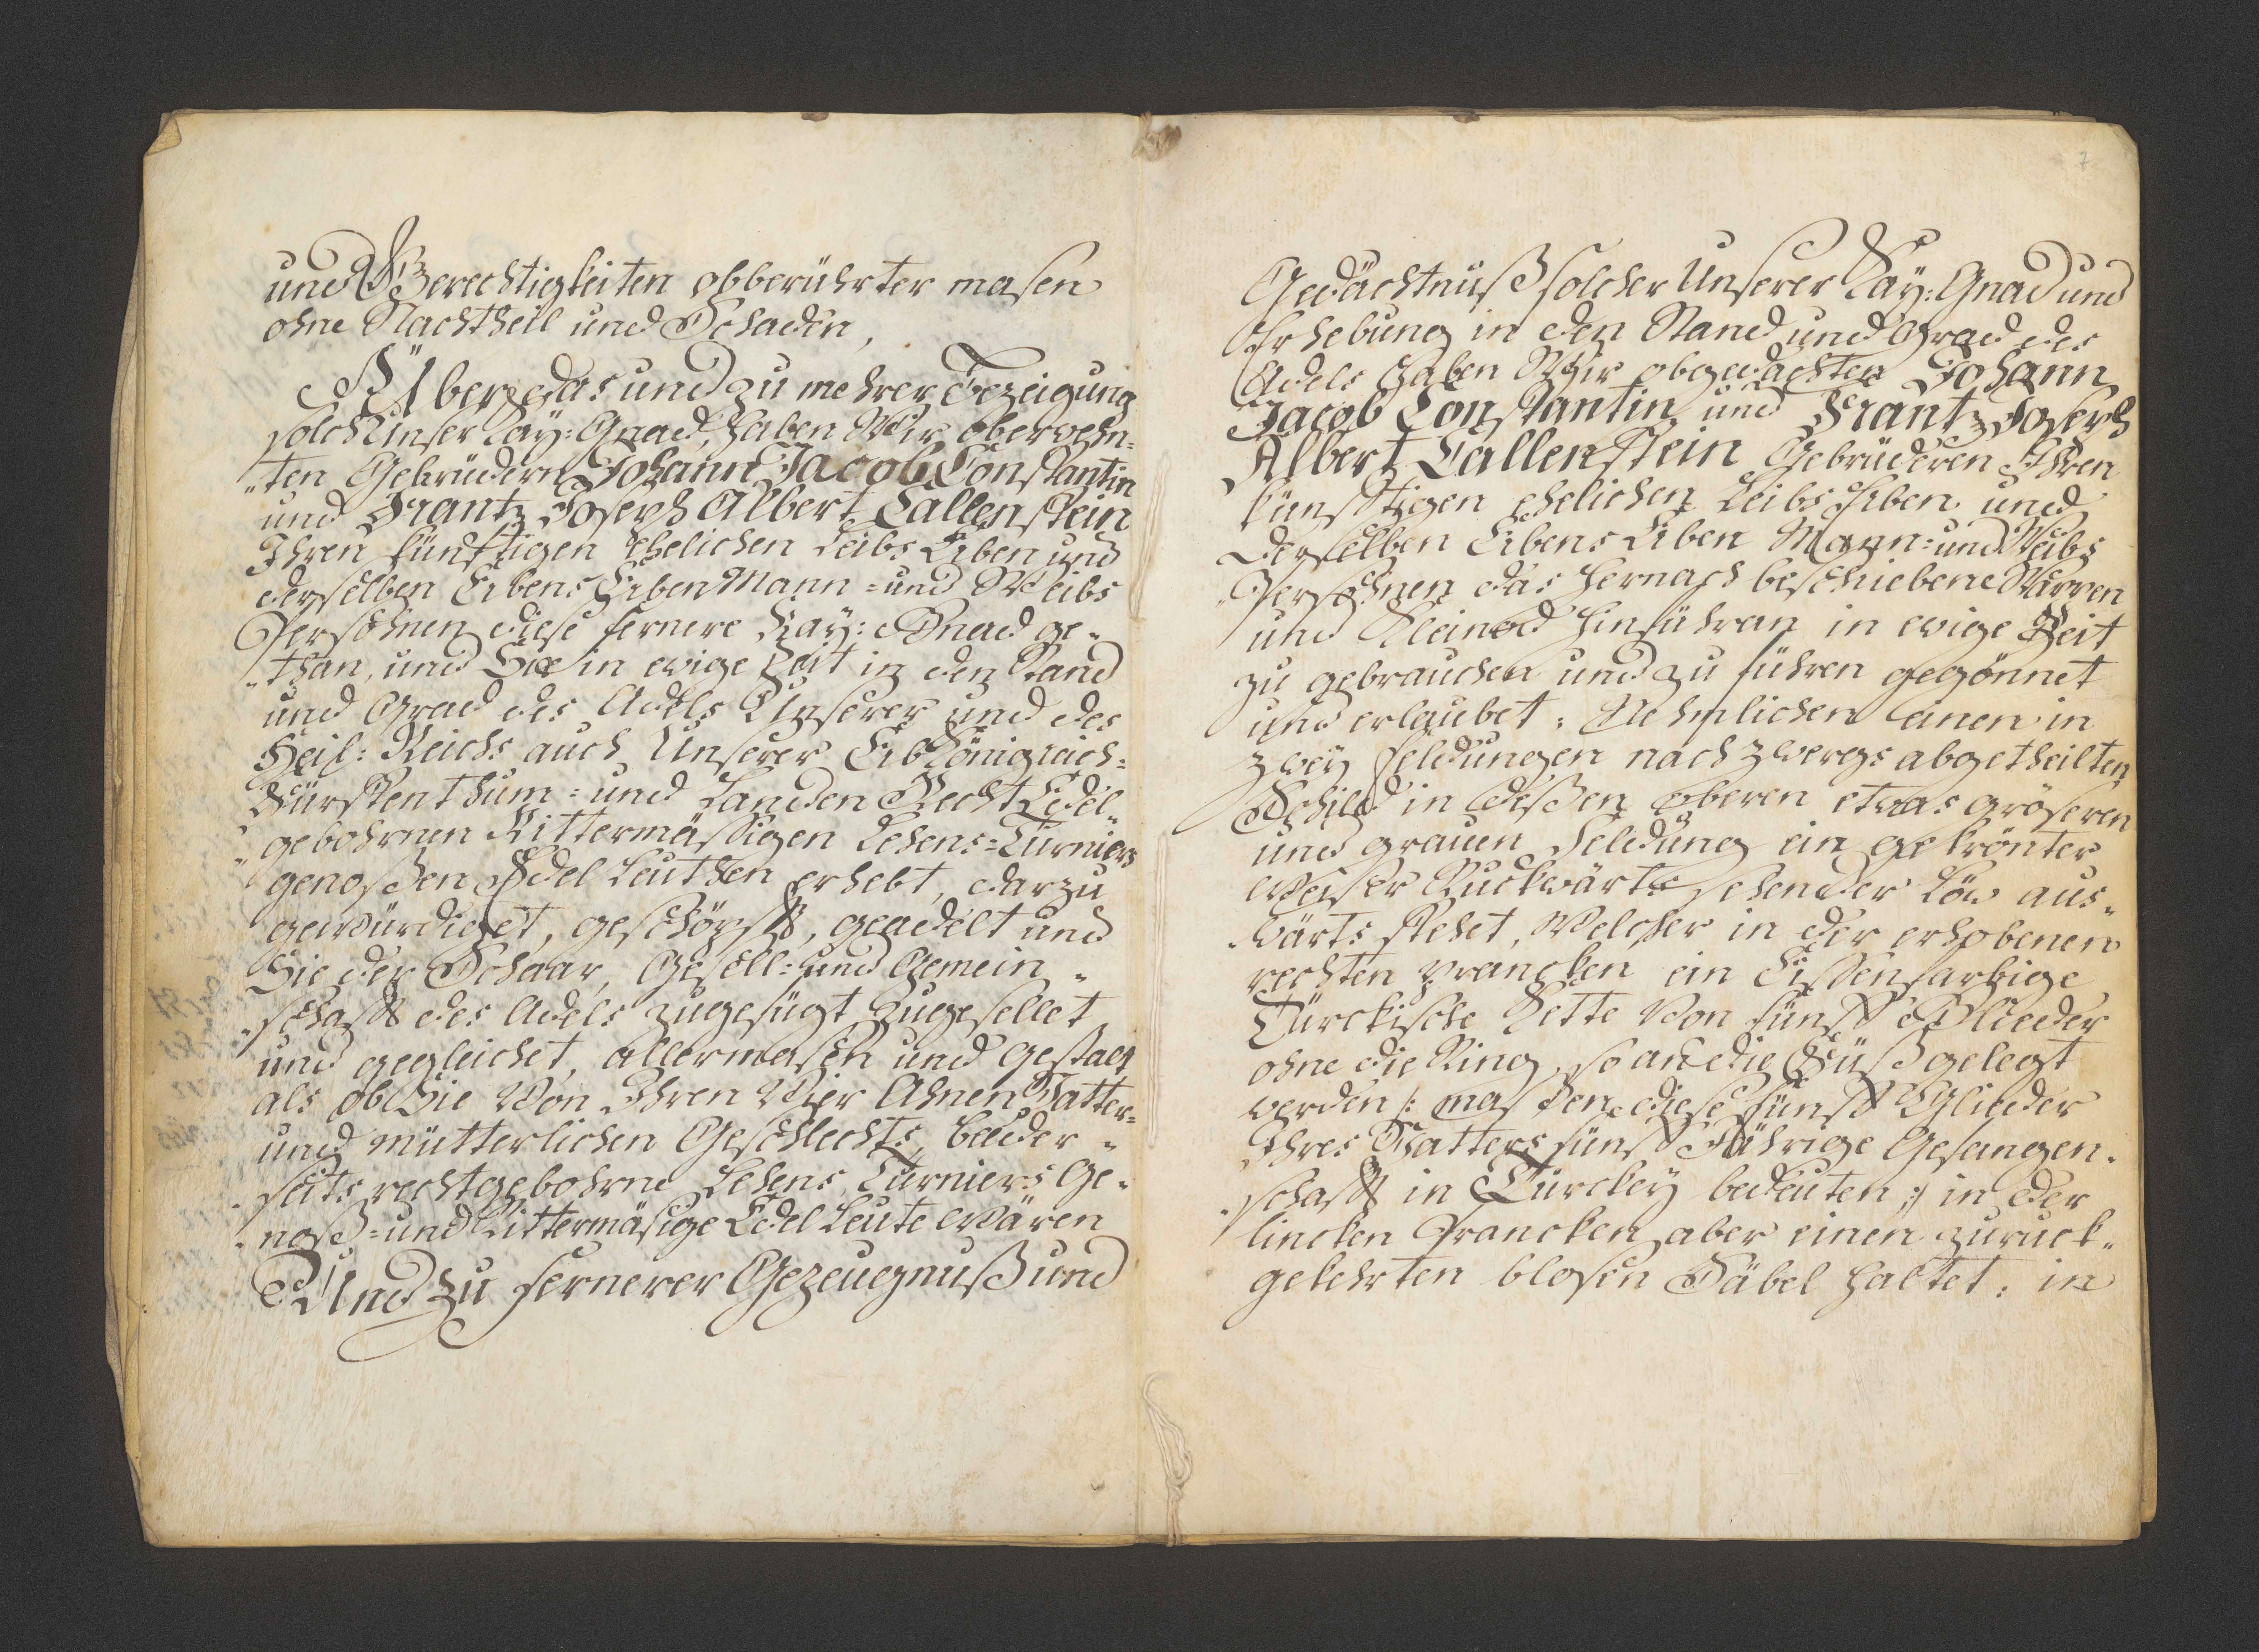 und Gerechtigkeiten obberührter masen
ohne Nachtheil und Schaden,
Über das und zu mehrer Bezeigung
solch Unser Kay: Gnad, haben Wir oberwehn=
„ten Gebrüdern Johann Jacob Constantin
und Frantz Joseph Albert Callenstein
Ihren künfftigen Ehelichen Leibs Erben und
derselben Erbens Erben Mann=und Weibs
Persohnen diese fernere Kay: Gnad ge„
„than, und Sie in ewige Zeit in den Stand
und Grad des Adels Unserer und des
Heil: Reichs auch Unserer Erbkönigreich=
Fürstenthum=und Landen Recht Edel„
„gebohrnen Rittermäßigen Lehens=Turniers
genoßen Edel Leuthen erhebt, darzu
gewürdiget, geschöpfft, geadelt und
Sie der Schaar, Gesell=und Gemein„
„schafft des Adels zugefügt zugesellet
und gegleichet, allermasen und gestalt
als ob Sie Von Ihren Vier Ahnen Vatter=
und mütterlichen Geschlechts, beeder„
„seits rechtgebohrne Lehens Turniers Ge„
„noß=und Rittermäsige Edel Leute Wären
Und zu fernerer Gezeugnuß und
7
Gedächtnuß solcher Unserer Kay: Gnad und
Erhebung in den Stand und Grad des
Adels haben Wir obgedachten Johann
Jacob Constantin und Frantz Joseph
Albert Callenstein Gebrüderen Ihren
künfftigen ehelichen Leibs Erben und
derselben Erbens Erben Mann=und Weibs
„Persohnen das hernach beschriebene Wappen
und Kleinod hinführan in ewige Zeit
zu gebrauchen und zu führen gegönnet
und erlaubet: Nehmlichen einen in
zwey Feldungen nach zwergs abgetheilten
Schild in deßen oberen etwas gröseren
und grauen Feldung ein gekrönter
Weiser Ruckwärts sehender Löw aus„
„wärts stehet, Welcher in der erhobenen
rechten prancken ein Eißenfarbige
Türckische Kette Von fünff Glieder
ohne die Ring, so an die Füß gelegt
werden /: masen diese fünff Glieder
Ihres Vatters fünff Jährige Gefangen„
„schafft in Türckey bedeuten :/ in der
lincken Prancken aber einen zuruck„
gekehrten blosen Säbel haltet: in